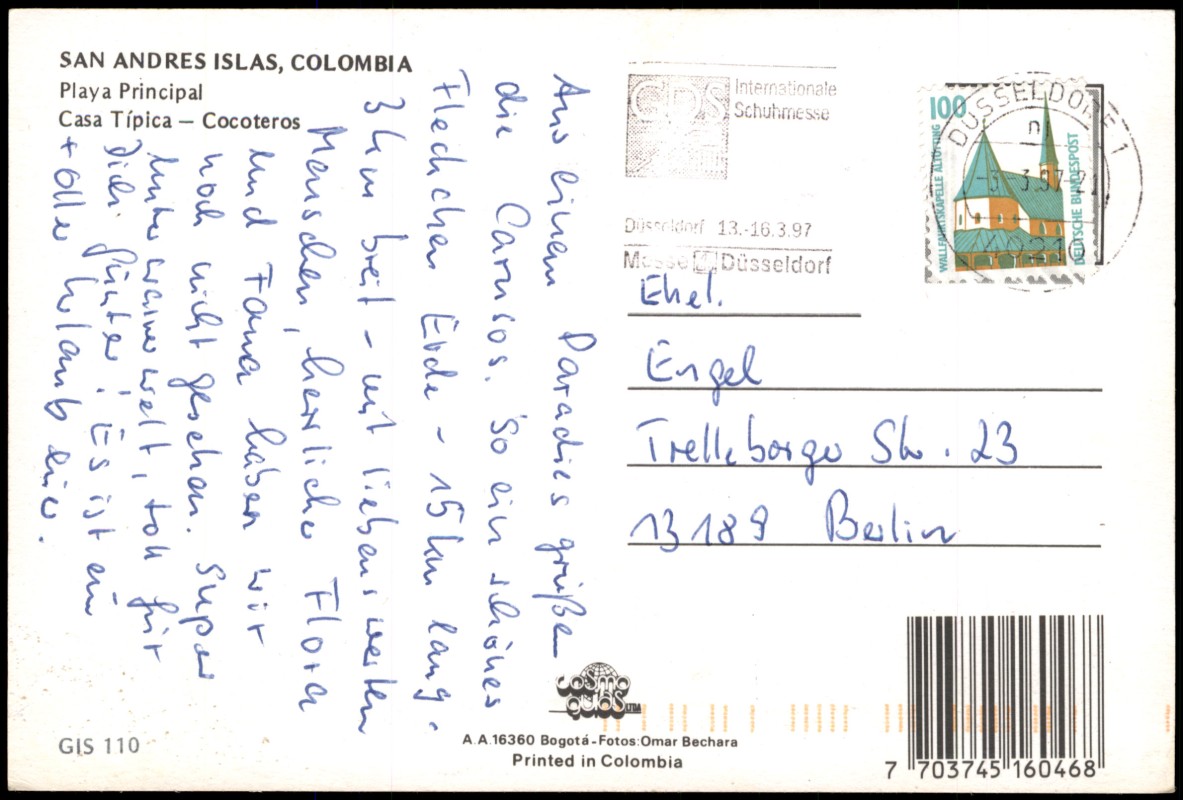 SAN ANDRES ISLAS, COLOMBIA
Playa Principal
Casa Típica – Cocoteros
Aus einem Paradies grüßen
die Carusos. So ein schönes
Fleckchen Erde – 15 km lang.
3 km breit – mit liebenswerten
Menschen, herrlicher Flora
und Fauna haben wir
noch nicht gesehen. Super
Unterwasserwelt, toll für
Dich, Günter! Es ist ein
toller Urlaub hier.
GDS
Internationale
Schuhmesse
Düsseldorf 13.-16.3.97
Messe Düsseldorf
DÜSSELDORF 1
40210
100
WALLFAHRTSKAPELLE ALTÖTTING
DEUTSCHE BUNDESPOST
Ehel.
Engel
Trelleborger Str. 23
13189 Berlin
COSMO
GUIAS LTDA
A.A.16360 Bogotá-Fotos: Omar Bechara
Printed in Colombia
GIS 110
7 703745 160468